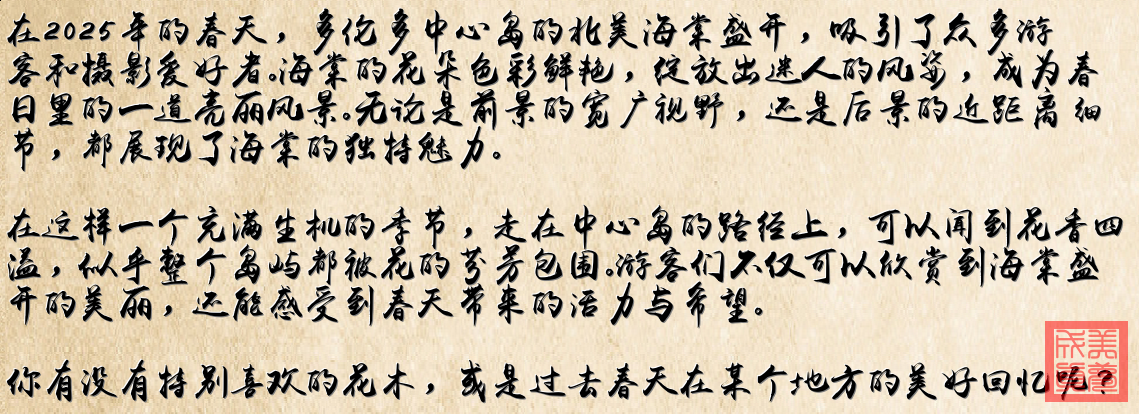 在2025年的春天，多伦多中心岛的北美海棠盛开，吸引了众多游
客和摄影爱好者。海棠的花朵色彩鲜艳，绽放出迷人的风姿，成为春
日里的一道亮丽风景。无论是前景的宽广视野，还是后景的近距离细
节，都展现了海棠的独特魅力。
在这样一个充满生机的季节，走在中心岛的路径上，可以闻到花香四
溢，似乎整个岛屿都被花的芬芳包围。游客们不仅可以欣赏到海棠盛
开的美丽，还能感受到春天带来的活力与希望。
你有没有特别喜欢的花木，或是过去春天在某个地方的美好回忆呢？